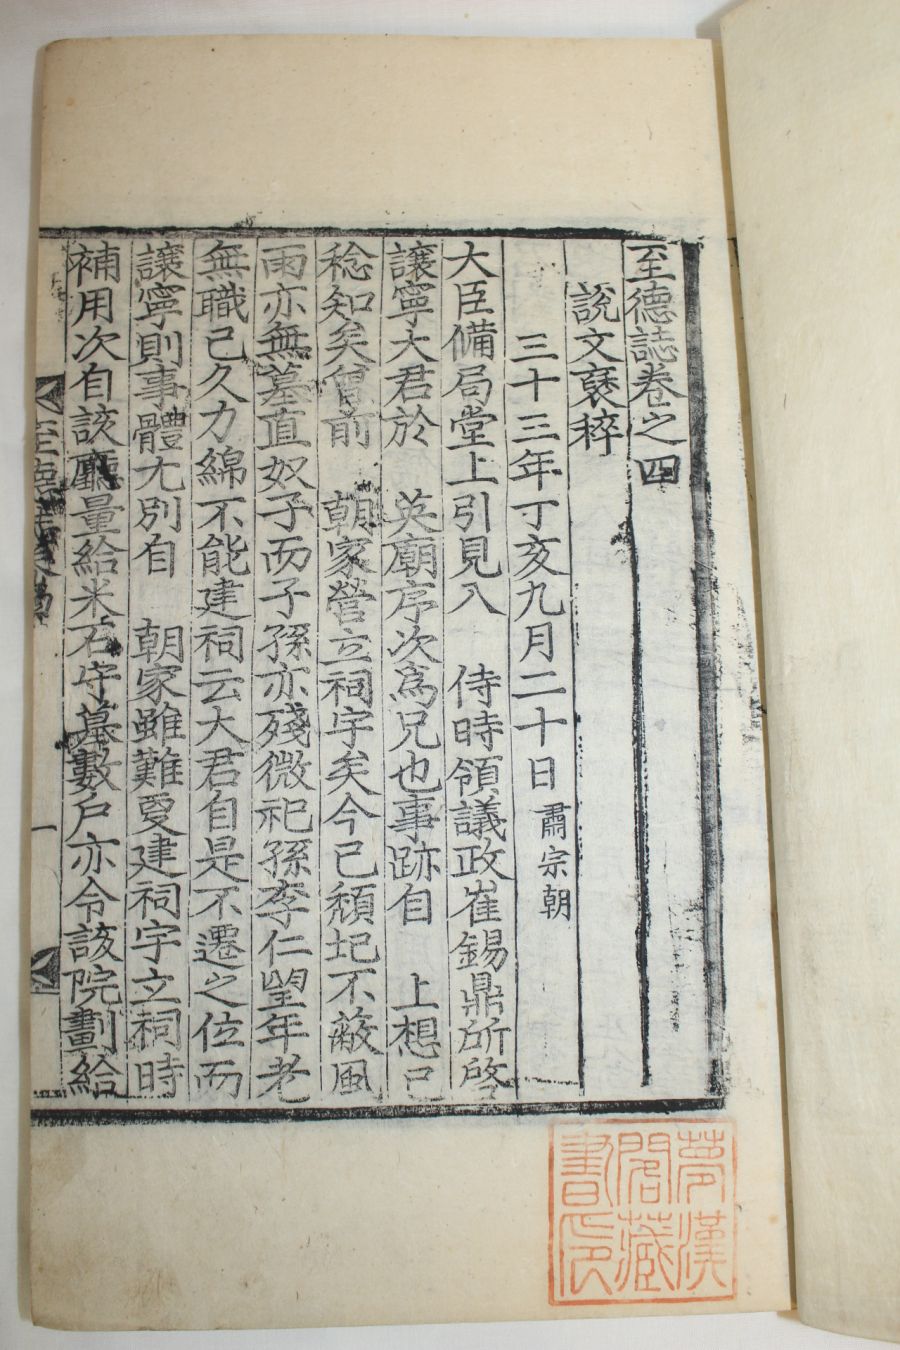 至德誌卷之四
說文裒稡
三十三年丁亥九月二十日 肅宗朝
大臣備局堂上引見入 侍時領議政崔錫鼎所啓
讓寧大君於 英廟序次爲兄也事跡自 上想已
稔知矣曾前 朝家營立祠宇矣今已頹圮不蔽風
雨亦無墓直奴子而子孫亦殘微祀孫李仁望年老
無職已久力綿不能建祠云大君自是不遷之位而
讓寧則事體尤別自 朝家雖難更建祠宇立祠時
補用次自該廳量給米石守墓數戶亦令該院劃給
一
夢漢
閣藏
書印